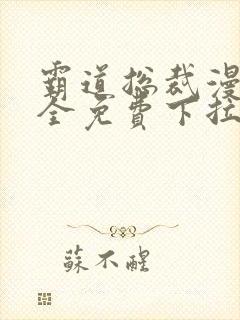 霸道总裁漫
全免費下拉
蘇不醒